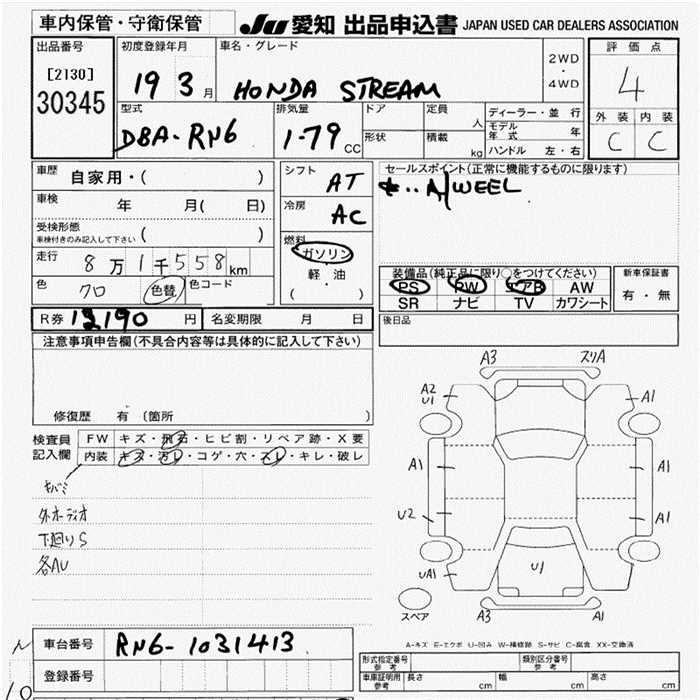 車内保管・守衛保管
JU 愛知 出品申込書 JAPAN USED CAR DEALERS ASSOCIATION
出品番号
[2130]
30345
初度登録年月
19 3 月
車名・グレード
HONDA STREAM
2WD
・
4WD
評価点
4
外装 内装
C C
型式
DBA-RN6
排気量
1.79 CC
ドア
形状
定員
人
積載
kg
ディーラー・並行
モデル年式 年
ハンドル 左・右
車歴 自家用・( )
車検 年 月( 日)
受検形態
車検付きのみ記入して下さい ( )
走行 8万1千558km
色 クロ 色替 色コード
シフト
AT
冷房
AC
燃料
ガソリン
軽・油
( )
セールスポイント(正常に機能するものに限ります)
A/WEEL
装備品(純正品に限り○をつけてください)
PS PW エアB AW
SR ナビ TV カワシート
新車保証書
有・無
R券 12190 円 名変期限 月 日
後日品
注意事項申告欄(不具合内容等は具体的に記入して下さい)
修復歴 有 (箇所 )
検査員
記入欄
FW キズ・飛石・ヒビ割・リペア跡・X要
内装 キズ・汚レ・コゲ・穴・スレ・キレ・破レ
キバミ
外オーディオ
下廻りS
各AU
A3 スリA
A2
U1
A1
A1 A1
U2 A1
UA1 U1 A1
スペア
A3 A1
A-キズ E-エクボ U-凹み W-補修跡 S-サビ C-腐食 XX-交換済
車台番号 RN6-1031413
登録番号
形式指定番号
参考
類別区分番号
参考
車庫証明用
参考
長さ cm 幅 cm 高さ cm
10